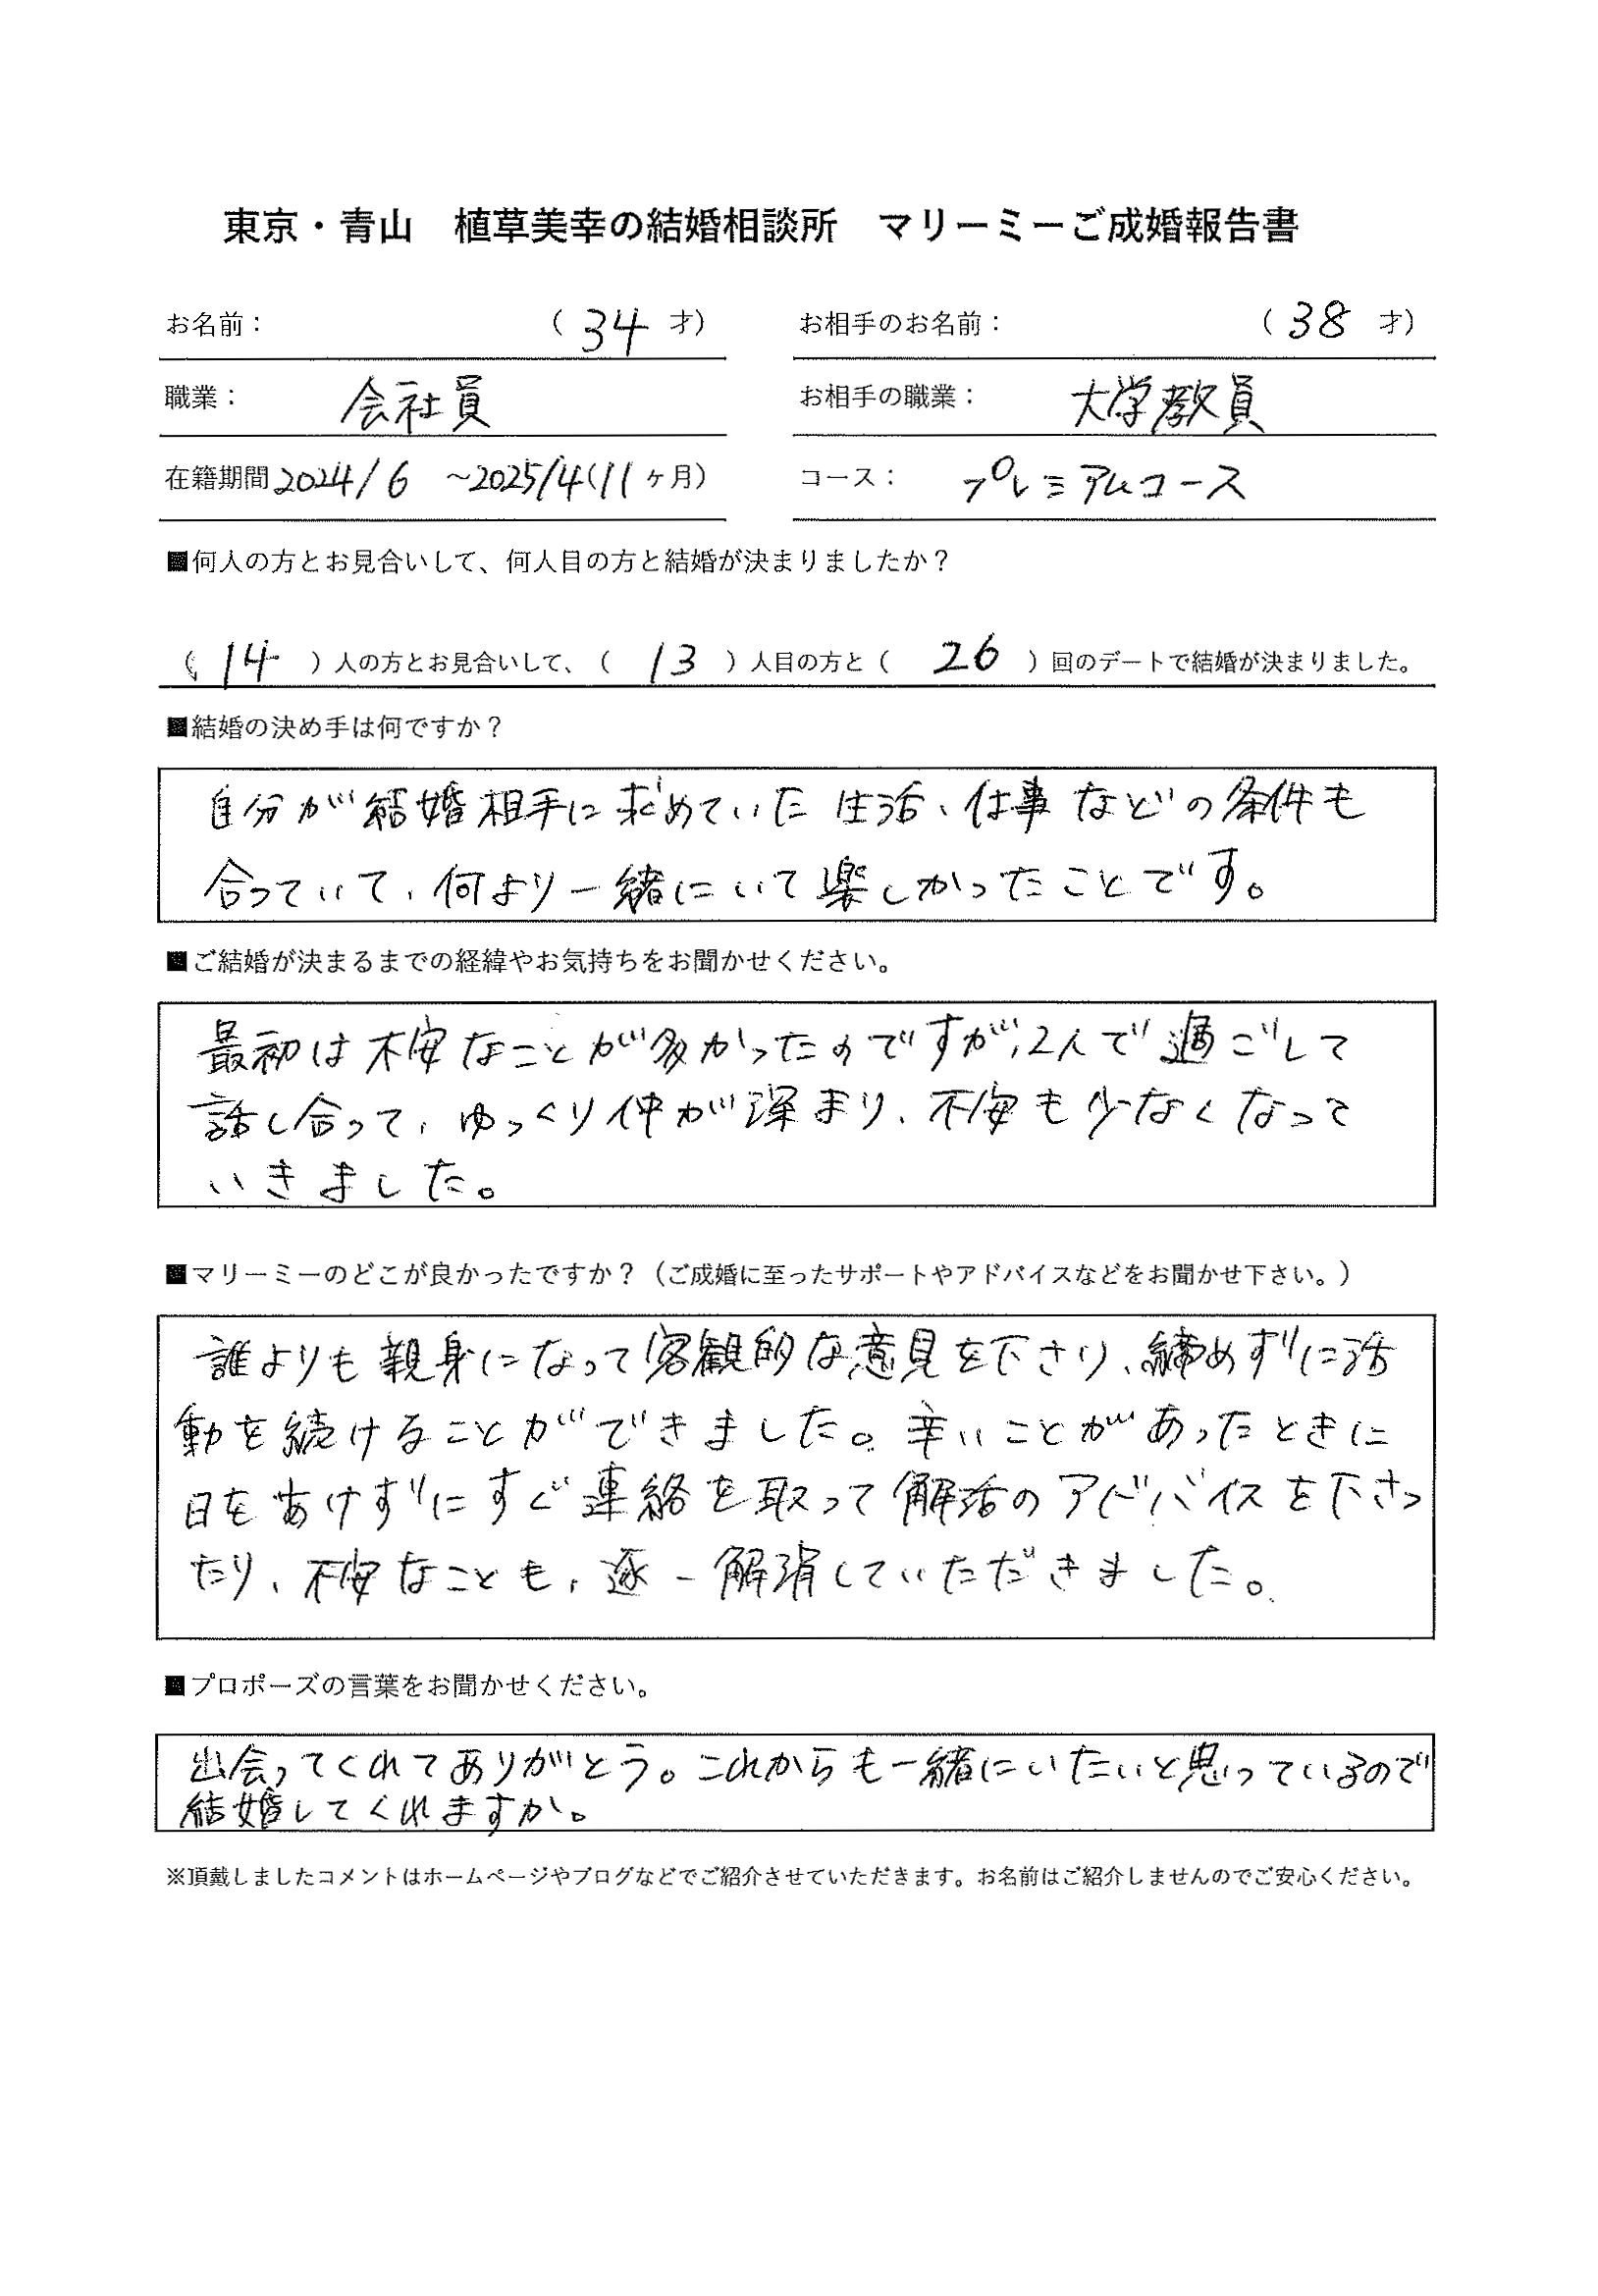 東京・青山　植草美幸の結婚相談所　マリーミーご成婚報告書
お名前：（ 34 才）　お相手のお名前：（ 38 才）
職業：　会社員　お相手の職業：　大学教員
在籍期間 2024/6 ～2025/4（11ヶ月）　コース：　プレミアムコース
■何人の方とお見合いして、何人目の方と結婚が決まりましたか？
（ 14 ）人の方とお見合いして、（ 13 ）人目の方と（ 26 ）回のデートで結婚が決まりました。
■結婚の決め手は何ですか？
自分が結婚相手に求めていた生活、仕事などの条件も
合っていて、何より一緒にいて楽しかったことです。
■ご結婚が決まるまでの経緯やお気持ちをお聞かせください。
最初は不安なことが多かったのですが、2人で過ごして
話し合って、ゆっくり仲が深まり、不安も少なくなって
いきました。
■マリーミーのどこが良かったですか？（ご成婚に至ったサポートやアドバイスなどをお聞かせ下さい。）
誰よりも親身になって客観的な意見を下さり、締めずに活
動を続けることができました。辛いことがあったときに
日をあけずにすぐ連絡を取って解活のアドバイスを下さっ
たり、不安なことも、逐一解消していただきました。
■プロポーズの言葉をお聞かせください。
出会ってくれてありがとう。これからも一緒にいたいと思っているので
結婚してくれますか。
※頂戴しましたコメントはホームページやブログなどでご紹介させていただきます。お名前はご紹介しませんのでご安心ください。